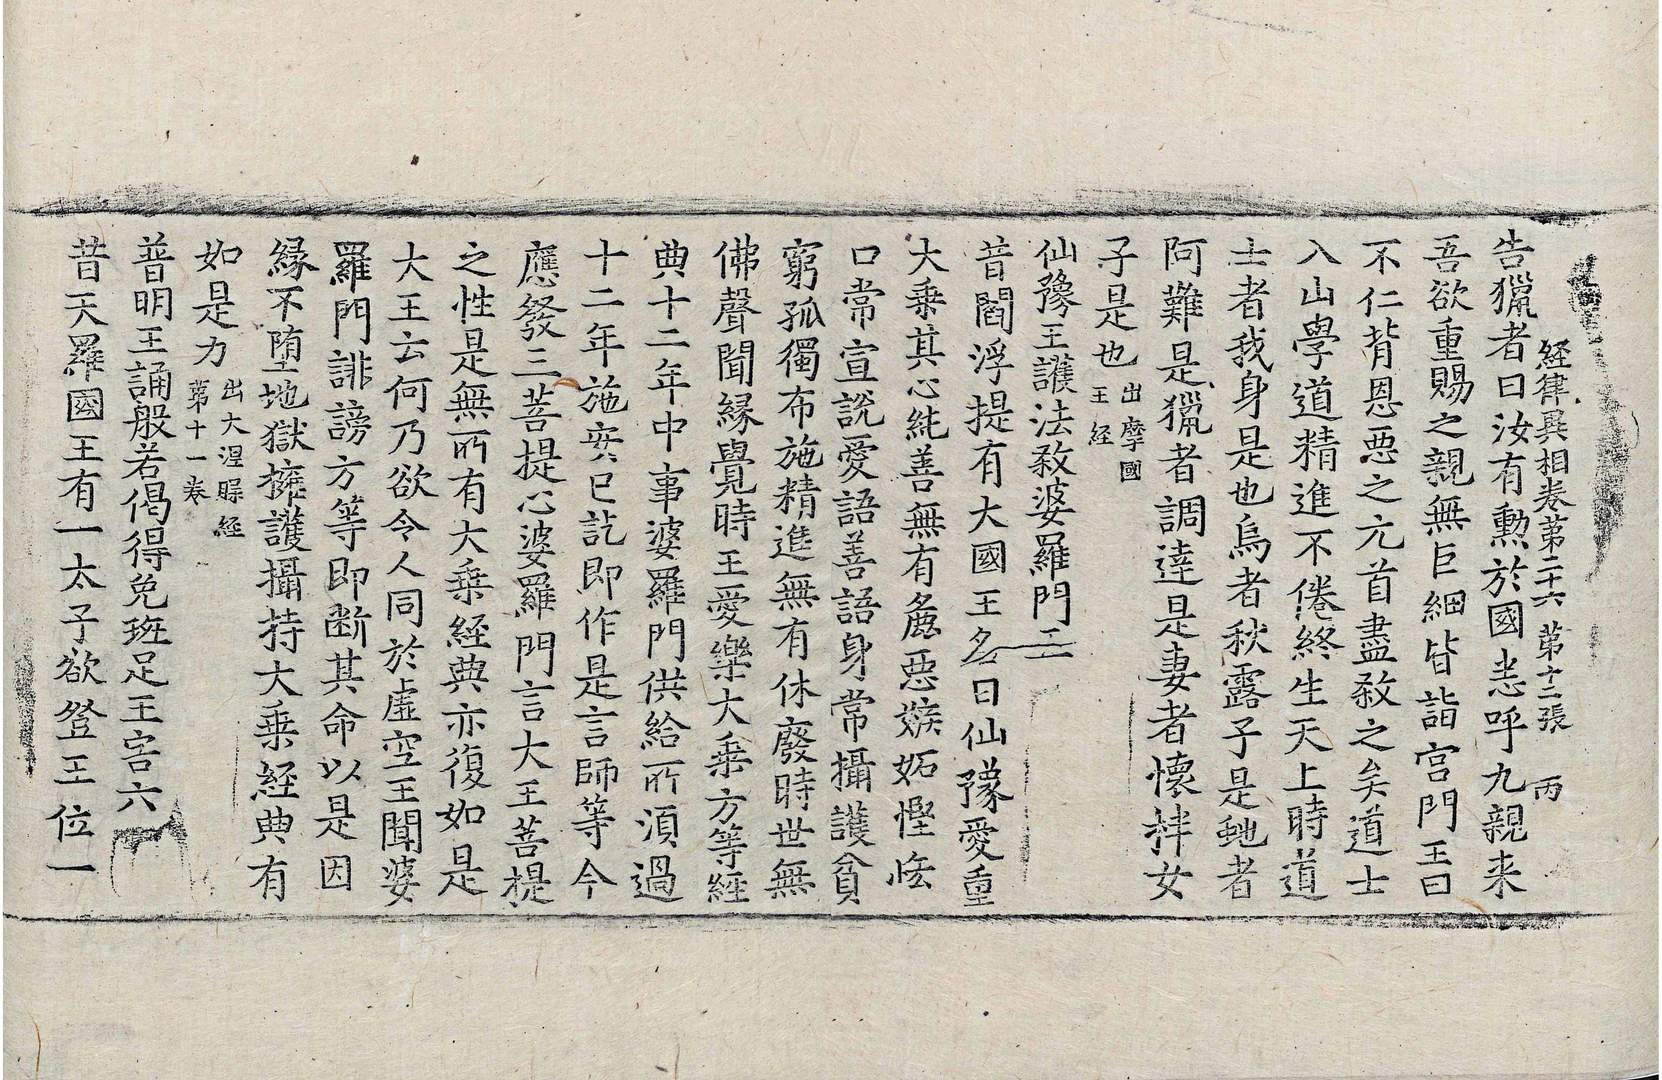 経律異相卷第二十六 第十二張 丙
告獵者曰汝有勲於國恚呼九親来
吾欲重賜之親無巨細皆詣宮門王曰
不仁背恩惡之元首盡殺之矣道士
入山學道精進不倦終生天上時道
士者我身是也烏者秋露子是虵者
阿難是獵者調達是妻者懷㭋女
子是也出摩國王経
仙豫王護法殺婆羅門五
昔閻浮提有大國王名曰仙豫愛重
大乗其心純善無有麁惡嫉妬慳悋
口常宣説愛語善語身常攝護貧
窮孤獨布施精進無有休廢時世無
佛聲聞縁覺時王愛樂大乗方等経
典十二年中事婆羅門供給所湏過
十二年施安已訖即作是言師等今
應發三菩提心婆羅門言大王菩提
之性是無所有大乗経典亦復如是
大王云何乃欲令人同於虛空王聞婆
羅門誹謗方等即断其命以是因
縁不堕地獄擁護攝持大乗経典有
如是力出大涅槃経第十一卷
普明王誦般若偈得免班足王害六
昔天羅國王有一太子欲登王位一